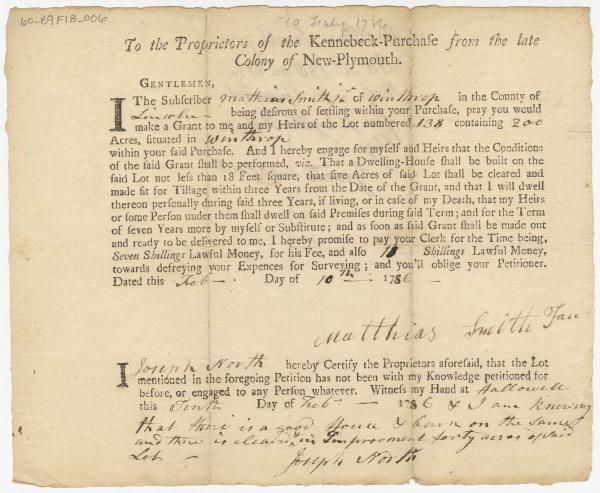 60-89F18_006
10 Feby 1786
To the Proprietors of the Kennebeck-Purchase from the late
Colony of New-Plymouth.
GENTLEMEN,
I The Subscriber Mathias Smith jr of Winthrop in the County of
Lincoln being desirous of settling within your Purchase, pray you would
make a Grant to me and my Heirs of the Lot numbered 138 containing 200
Acres, situated in Winthrop
within your said Purchase. And I hereby engage for myself and Heirs that the Conditions
of the said Grant shall be performed, viz. That a Dwelling-House shall be built on the
said Lot not less than 18 Feet square, that five Acres of said Lot shall be cleared and
made fit for Tillage within three Years from the Date of the Grant, and that I will dwell
thereon personally during said three Years, if living, or in case of my Death, that my Heirs
or some Person under them shall dwell on said Premises during said Term; and for the Term
of seven Years more by myself or Substitute; and as soon as said Grant shall be made out
and ready to be delivered to me, I hereby promise to pay your Clerk for the Time being,
Seven Shillings Lawful Money, for his Fee, and also Shillings Lawful Money,
towards defreying your Expences for Surveying; and you'll oblige your Petitioner.
Dated this Feb Day of 10th 1786
Matthias Smith
I Joseph North hereby Certify the Proprietors aforesaid, that the Lot
mentioned in the foregoing Petition has not been with my Knowledge petitioned for
before, or engaged to any Person whatever. Witness my Hand at Hallowell
this Tenth Day of Feb 1786 & I am knowing
that there is a good House & barn on the same
and there is cleared & in Improvment forty acres of said
Lot
Joseph North